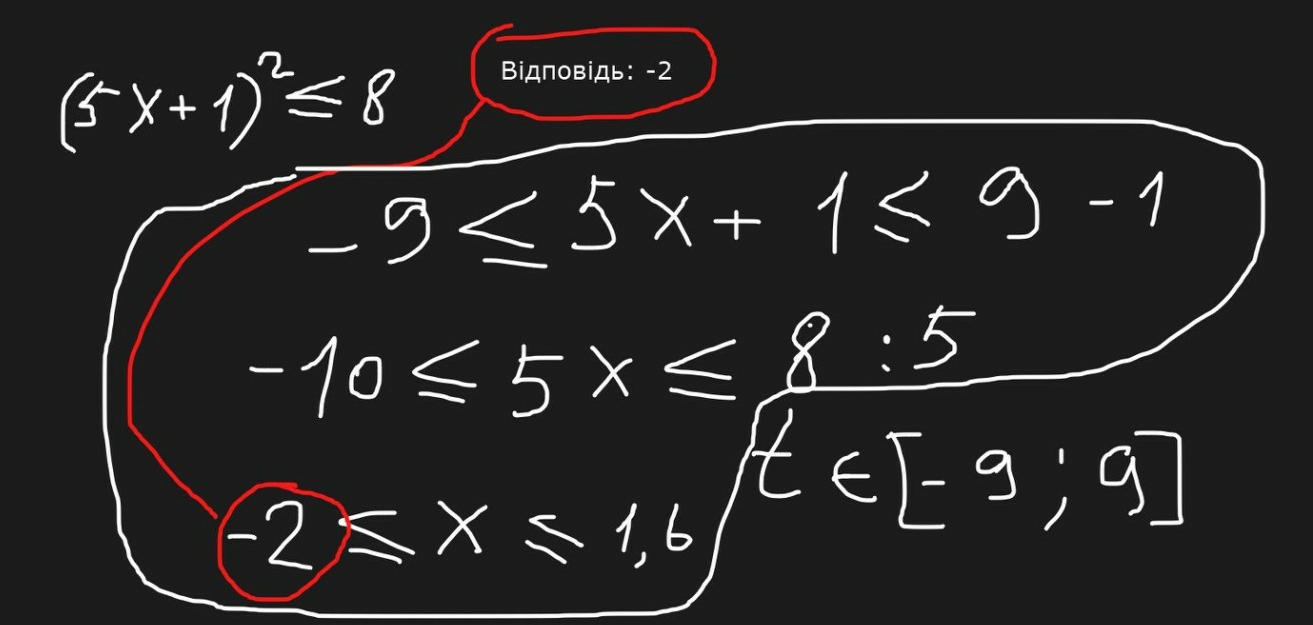 (5x+1)² ≤ 8
Відповідь: -2
-9 ≤ 5x + 1 ≤ 9 -1
-10 ≤ 5x ≤ 8 :5
t ∈ [-9 ; 9]
-2 ≤ x ≤ 1,6